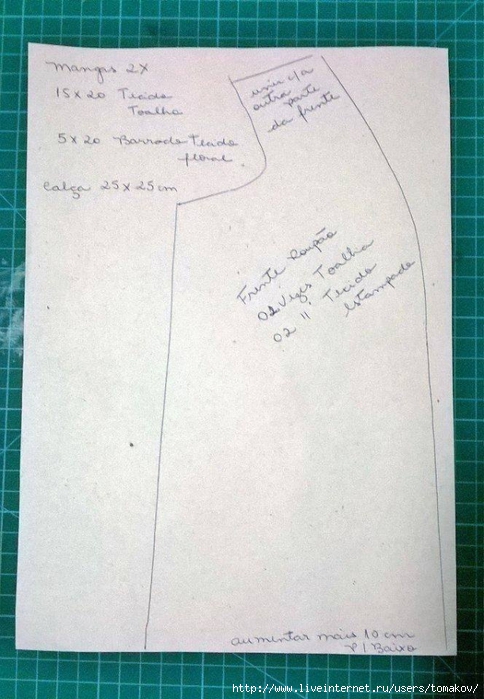 Mangas 2X
15 X 20 Tecido
Toalha
5 X 20 Barrado Tecido
floral.
Calça 25 X 25 cm
unir c/a
outra parte
da frente
Frente Roupão
02 Vezes Toalha
02 " Tecido
Estampado
aumentar mais 10 cm
P/ Baixo
http://www.liveinternet.ru/users/tomakov/